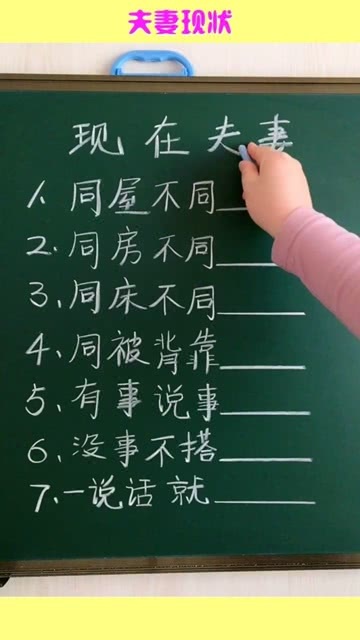 夫妻现状
现在夫妻
1、同屋不同____
2、同房不同____
3、同床不同____
4、同被背靠____
5、有事说事____
6、没事不搭____
7、一说话就____